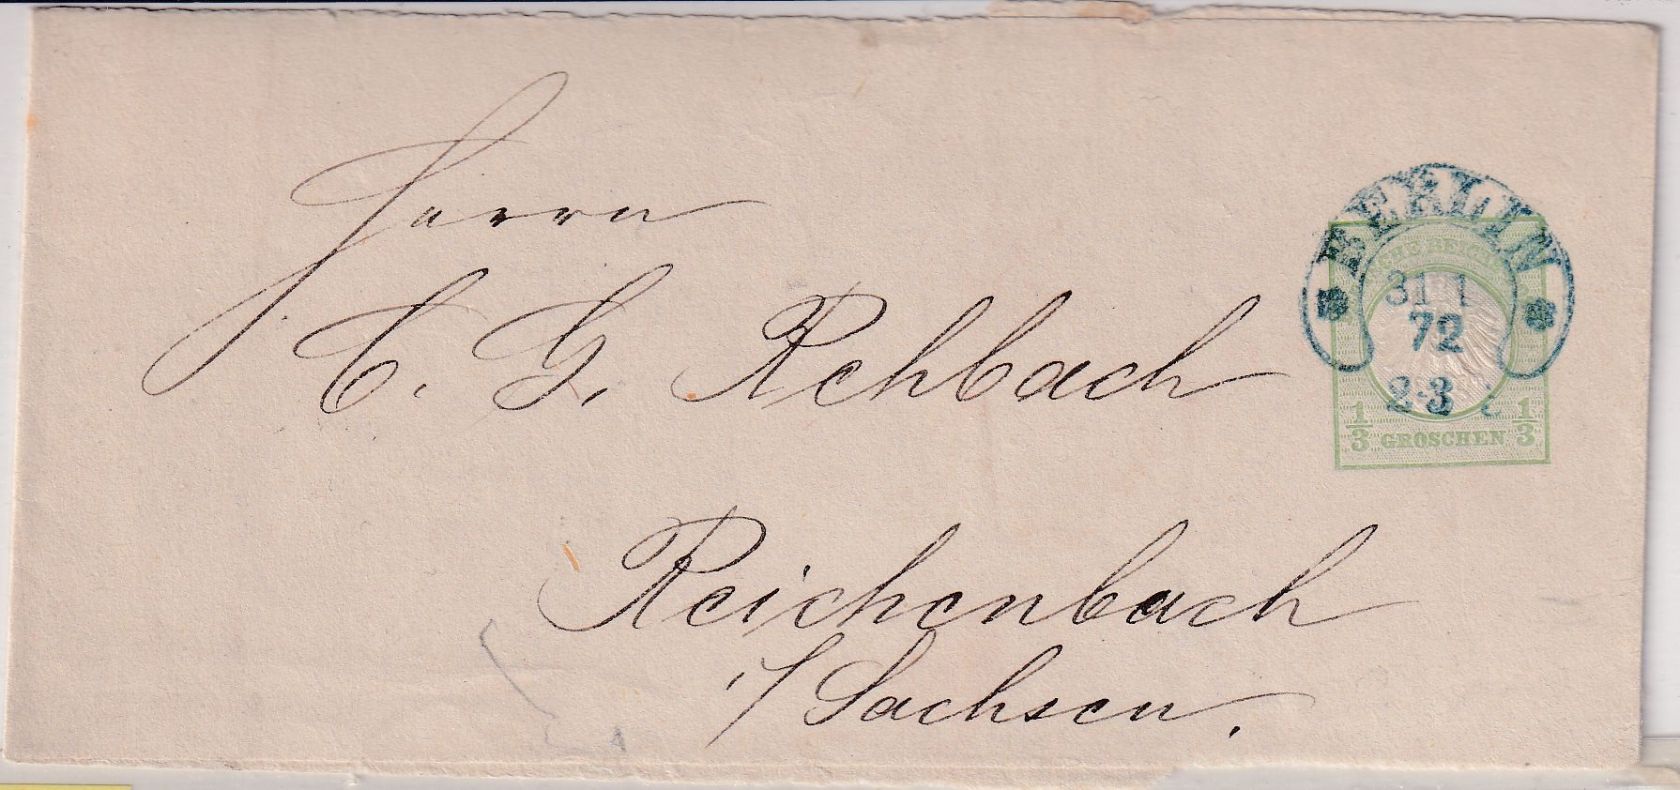 Herrn
C. G. Rehbach
Reichenbach
i/Sachsen.
BERLIN
31 1
72
2-3
REICHS
1/3 GROSCHEN 1/3